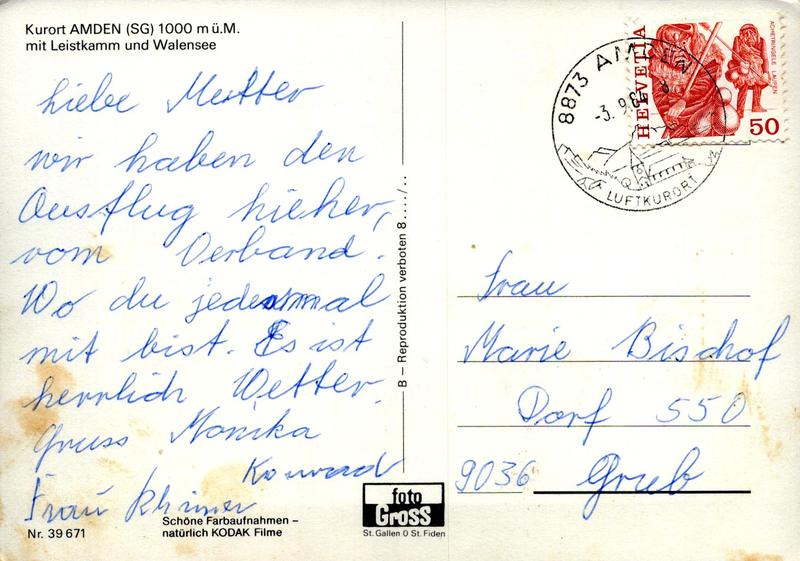 Kurort AMDEN (SG) 1000 m ü.M.
mit Leistkamm und Walensee
liebe Mutter
wir haben den
Ausflug hieher,
vom Verband.
Wo du jedesmal
mit bist. Es ist
herrlich Wetter.
Gruss Monika
Konrad
Frau
Schöne Farbaufnahmen –
natürlich KODAK Filme
Nr. 39 671
B – Reproduktion verboten 8..../..
foto
Gross
St. Gallen O St. Fiden
8873 AMDEN
-3. 9.84
LUFTKURORT
HELVETIA
ACHETRINGELE LAUPEN
50
Frau
Marie Bischof
Dorf 550
9036 Grub